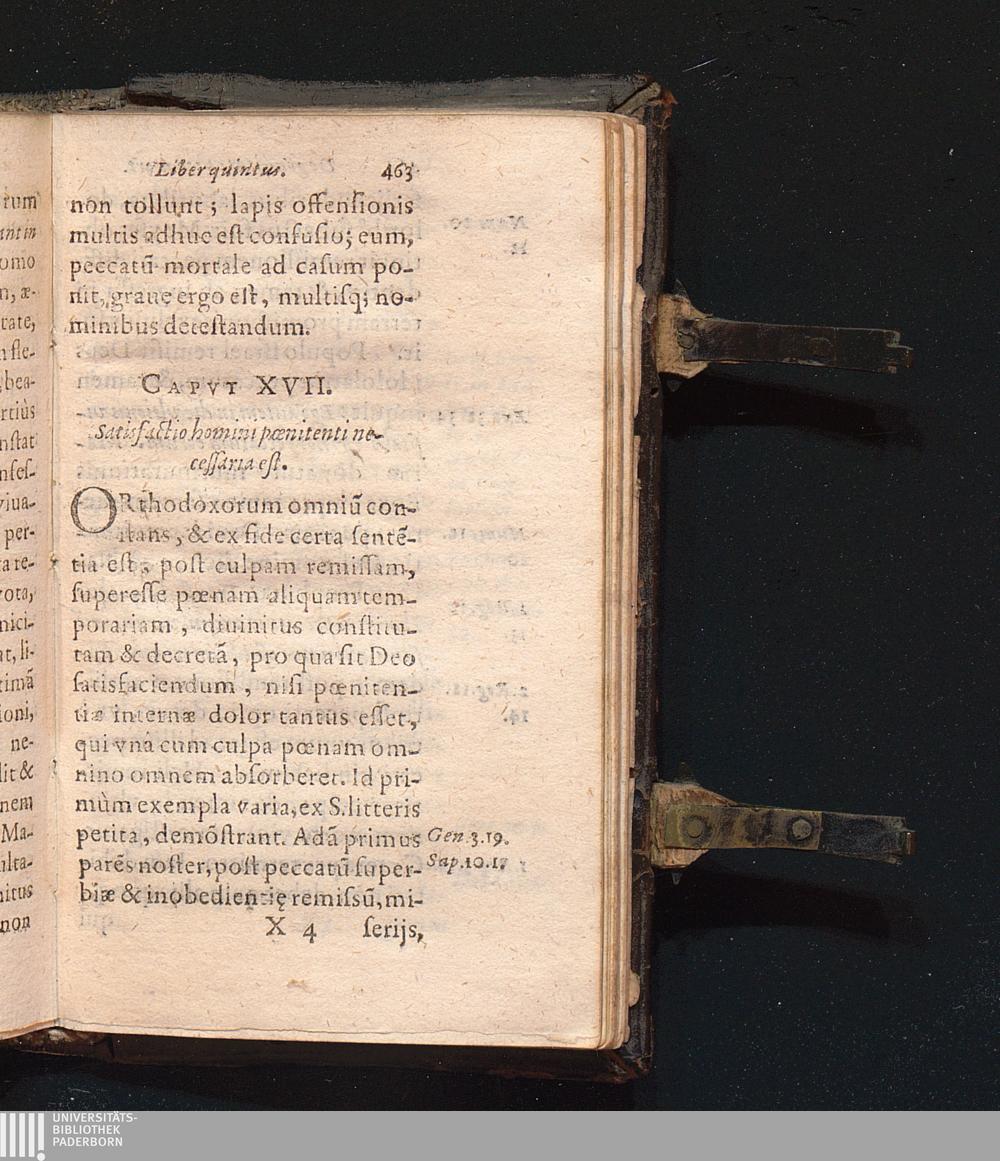 Liber quintus. 463
non tollunt; lapis offensionis
multis adhuc est confusio; eum,
peccatũ mortale ad casum po-
nit, graue ergo est, multisq; no-
minibus detestandum.
CAPVT XVII.
Satisfactio homini pœnitenti ne-
cessaria est.
ORthodoxorum omniũ con-
stans, & ex fide certa sentẽ-
tia est, post culpam remissam,
superesse pœnam aliquam tem-
porariam, diuinitus constitu-
tam & decretã, pro qua sit Deo
satisfaciendum, nisi pœniten-
tiæ internæ dolor tantus esset,
qui vnà cum culpa pœnam om-
nino omnem absorberet. Id pri-
mùm exempla varia, ex S. litteris
petita, demõstrant. Adã primus Gen. 3.19.
parẽs noster, post peccatũ super- Sap. 10.1.
biæ & inobedientię remissũ, mi-
X 4 serijs,
rum
ant in
omo
n, æ-
tate,
bea-
rtiùs
nstat
nfes-
viua-
per-
ta re-
vota,
nici-
at, li-
timã
ioni,
ne-
lit &
nem
Ma-
ulta-
nitus
non
UNIVERSITÄTS-
BIBLIOTHEK
PADERBORN